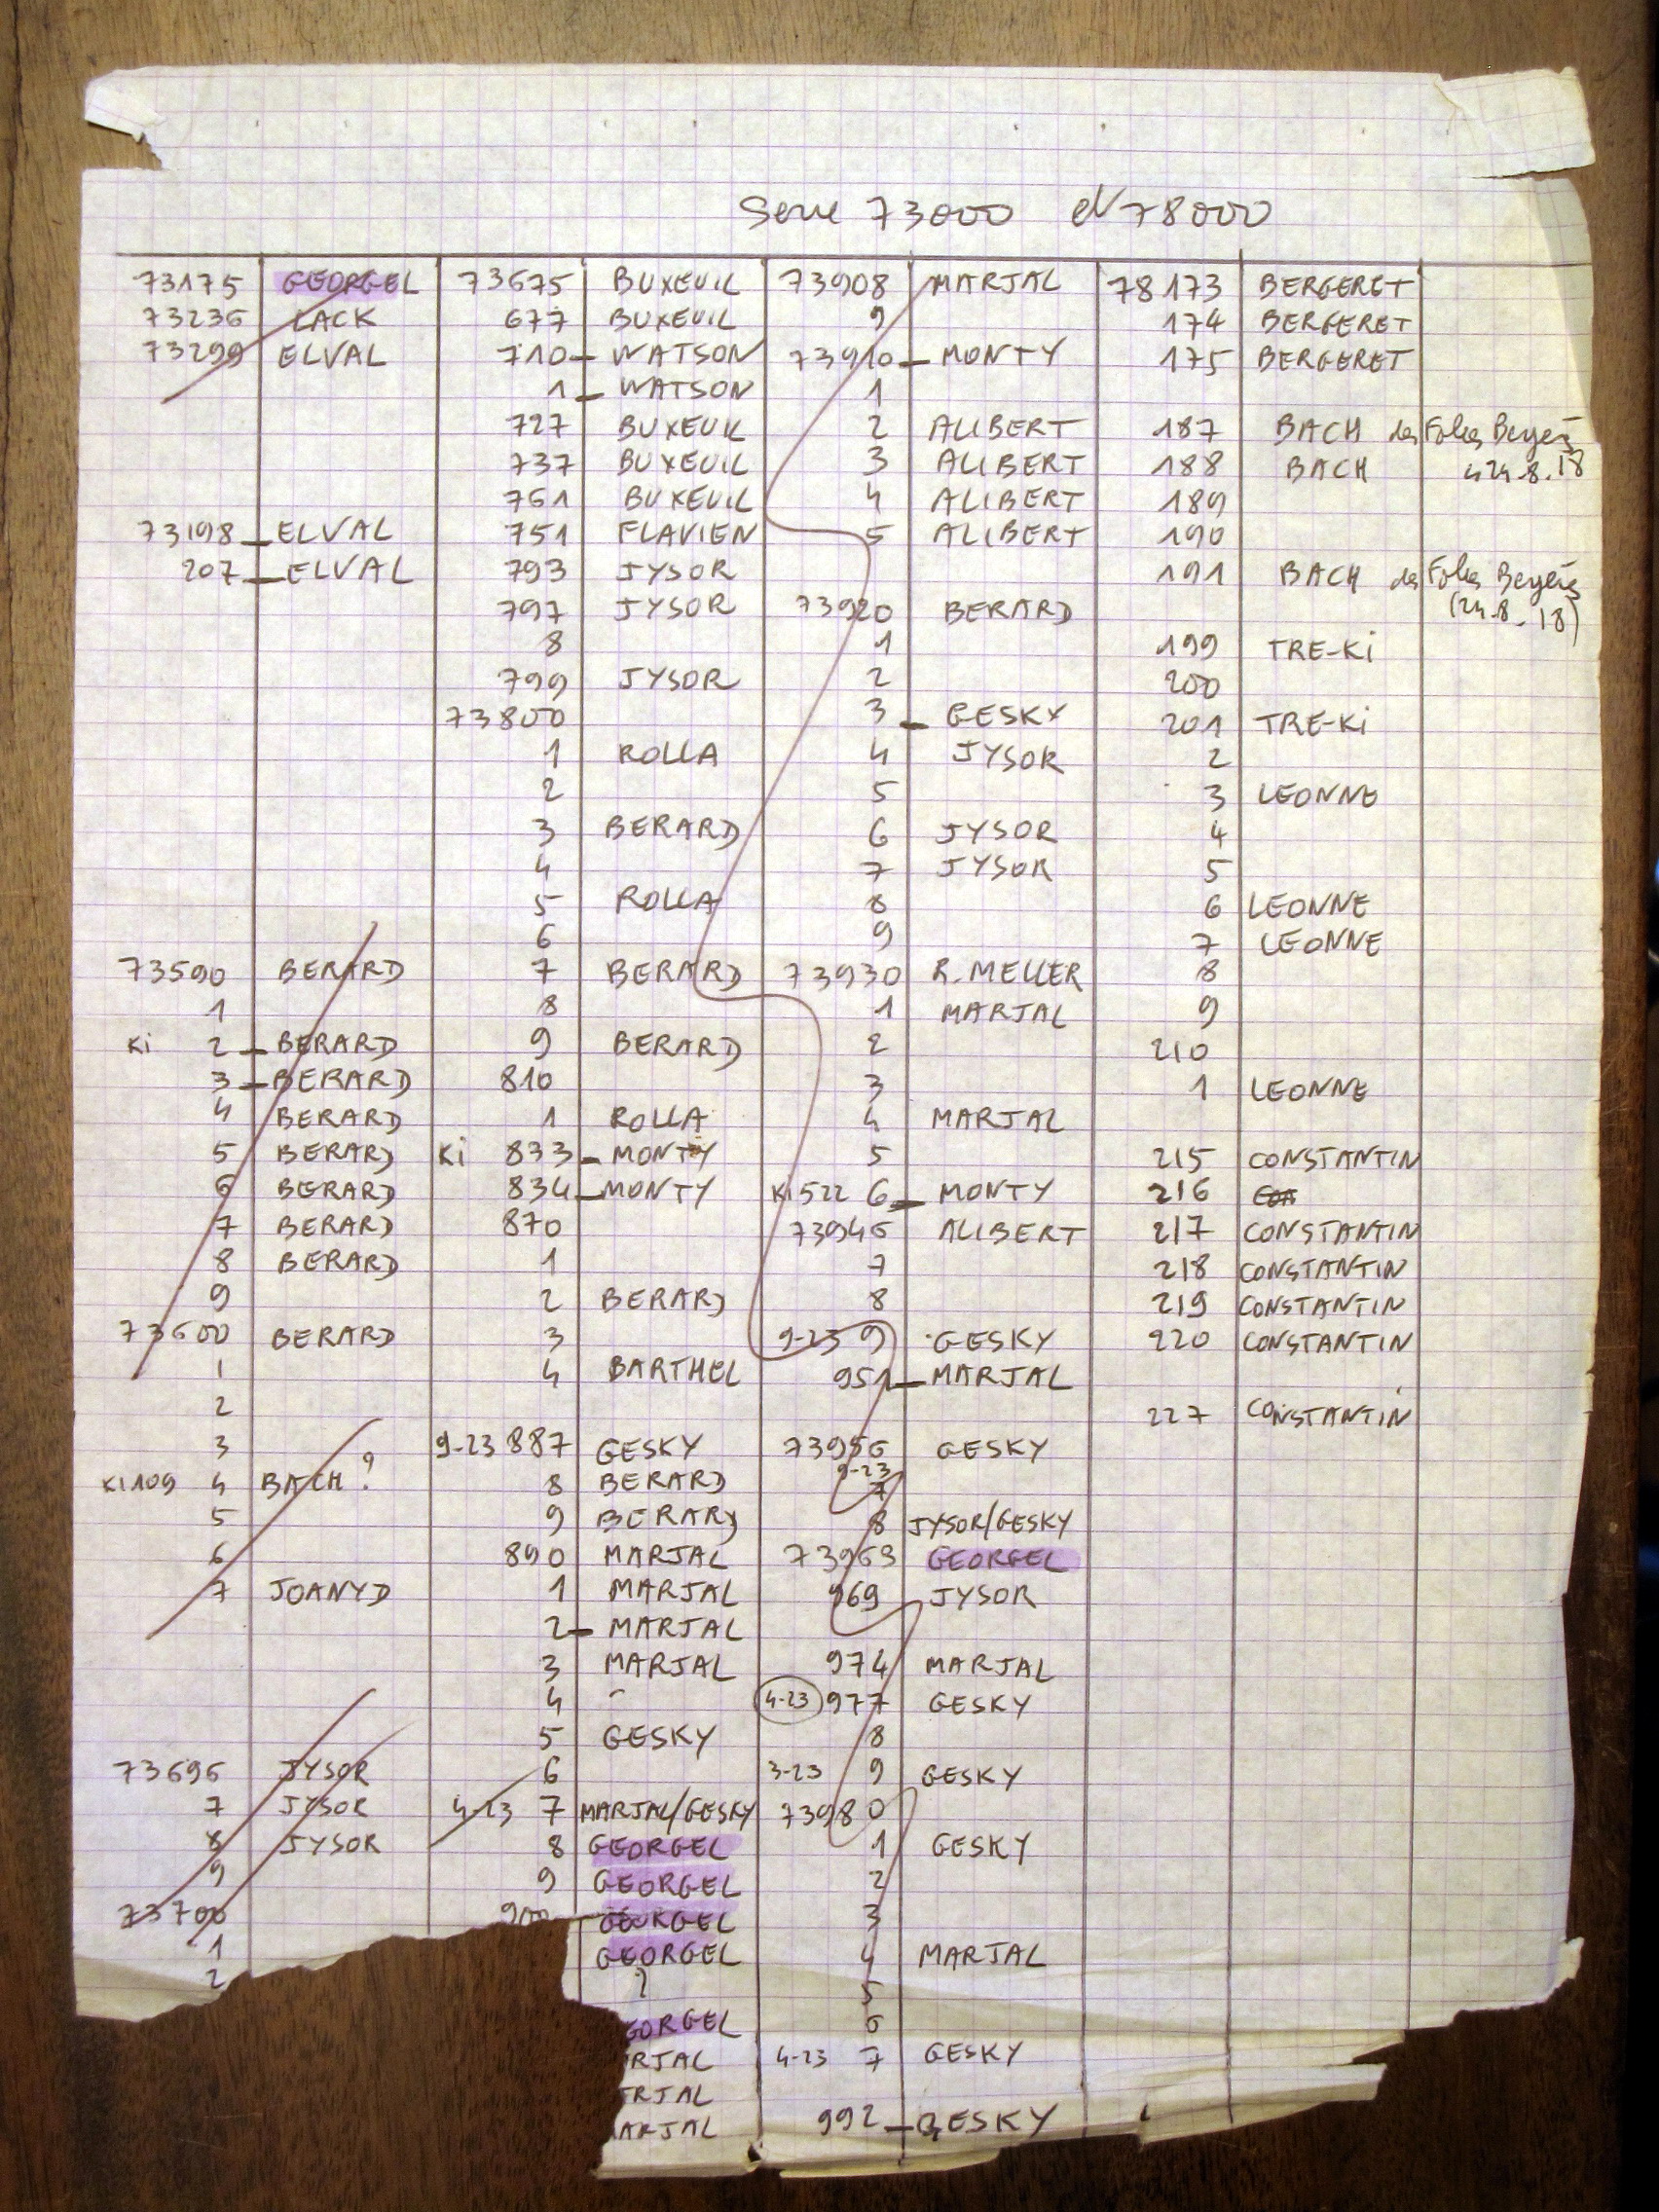 Serie 73000 et 78000
73175 GEORGEL 73675 BUXEUIL 73908 MARJAL 78173 BERGERET
73236 LACK 677 BUXEUIL 9 174 BERGERET
73299 ELVAL 710 - WATSON 73910 - MONTY 175 BERGERET
1 - WATSON 1
727 BUXEUIL 2 ALIBERT 187 BACH des Folies Bergère
737 BUXEUIL 3 ALIBERT 188 BACH 24.8.18
761 BUXEUIL 4 ALIBERT 189
73198 - ELVAL 751 FLAVIEN 5 ALIBERT 190
207 - ELVAL 793 JYSOR 191 BACH des Folies Bergère
797 JYSOR 73920 BERARD (24.8.18)
8 1 199 TRE-Ki
799 JYSOR 2 200
73800 3 - GESKY 201 TRE-Ki
1 ROLLA 4 JYSOR 2
2 5 3 LEONNE
3 BERARD 6 JYSOR 4
4 7 JYSOR 5
5 ROLLA 8 6 LEONNE
6 9 7 LEONNE
73590 BERARD 7 BERARD 73930 R. MELLER 8
1 8 1 MARJAL 9
Ki 2 - BERARD 9 BERARD 2 210
3 - BERARD 810 3 1 LEONNE
4 BERARD 1 ROLLA 4 MARJAL
5 BERARD Ki 833 - MONTY 5 215 CONSTANTIN
6 BERARD 834 - MONTY Ki 522 6 - MONTY 216
7 BERARD 870 73946 ALIBERT 217 CONSTANTIN
8 BERARD 1 7 218 CONSTANTIN
9 2 BERARD 8 219 CONSTANTIN
73600 BERARD 3 9-23 9 GESKY 220 CONSTANTIN
1 4 BARTHEL 951 - MARJAL
2 227 CONSTANTIN
3 9-23 887 GESKY 73956 GESKY
Ki 109 4 BACH ? 8 BERARD 9-23 7
5 9 BERARD 8 JYSOR/GESKY
6 890 MARJAL 73963 GEORGEL
7 JOANYD 1 MARJAL 969 JYSOR
2 - MARJAL
3 MARJAL 974 MARJAL
4 - 4-23 977 GESKY
5 GESKY 8
73696 JYSOR 6 3-23 9 GESKY
7 JYSOR 4-23 7 MARJAL/GESKY 73980
8 JYSOR 8 GEORGEL 1 GESKY
9 9 GEORGEL 2
73700 900 GEORGEL 3
1 GEORGEL 4 MARJAL
2 ? 5
EORGEL 6
RJAL 4-23 7 GESKY
RJAL
ARJAL 992 - GESKY